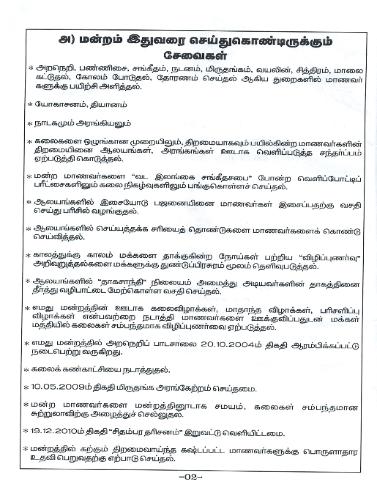 அ) மன்றம் இதுவரை செய்துகொண்டிருக்கும்
சேவைகள்
* அறநெறி, பண்ணிசை, சங்கீதம், நடனம், மிருதங்கம், வயலின், சித்திரம், மாலை
கட்டுதல், கோலம் போடுதல், தோரணம் செய்தல் ஆகிய துறைகளில் மாணவர்
களுக்கு பயிற்சி அளித்தல்.
* யோகாசனம், தியானம்
* நாடகமும் அரங்கியலும்
* கலைகளை ஒழுங்கான முறையிலும், திறமையாகவும் பயில்கின்ற மாணவர்களின்
திறமையினை ஆலயங்கள், அரங்கங்கள் ஊடாக வெளிப்படுத்த சந்தர்ப்பம்
ஏற்படுத்தி கொடுத்தல்.
* மன்ற மாணவர்களை "வட இலங்கை சங்கீதசபை" போன்ற வெளிப்போட்டிப்
பரீட்சைகளிலும் கலை நிகழ்வுகளிலும் பங்குகொள்ளச் செய்தல்.
* ஆலயங்களில் இசையோடு பஜனையினை மாணவர்கள் இசைப்பதற்கு வசதி
செய்து பரிசில் வழங்குதல்.
* ஆலயங்களில் செய்யத்தக்க சரியைத் தொண்டுகளை மாணவர்களைக் கொண்டு
செய்வித்தல்.
* காலத்துக்கு காலம் மக்களை தாக்குகின்ற நோய்கள் பற்றிய "விழிப்புணர்வு"
அறிவுறுத்தல்களை மக்களுக்கு துண்டுப்பிரசுரம் மூலம் தெளிவுபடுத்தல்.
* ஆலயங்களில் "தாகசாந்தி" நிலையம் அமைத்து அடியவர்களின் தாகத்தினை
தீர்த்து வழிபாட்டை மேற்கொள்ள வசதி செய்தல்.
* எமது மன்றத்தின் ஊடாக கலைவிழாக்கள், மாதாந்த விழாக்கள், பரிசளிப்பு
விழாக்கள் என்பவற்றை நடாத்தி மாணவர்களை ஊக்குவிப்பதுடன் மக்கள்
மத்தியில் கலைகள் சம்பந்தமாக விழிப்புணர்வை ஏற்படுத்தல்.
* எமது மன்றத்தில் அறநெறிப் பாடசாலை 20.10.2004ம் திகதி ஆரம்பிக்கப்பட்டு
நடைபெற்று வருகிறது.
* கலைக் கண்காட்சியை நடாத்துதல்.
* 10.05.2009ம் திகதி மிருதங்க அரங்கேற்றம் செய்தமை.
* மன்ற மாணவர்களை மன்றத்தினூடாக சமயம், கலைகள் சம்பந்தமான
சுற்றுலாவிற்கு அழைத்துச் செல்லுதல்.
* 19.12.2010ம் திகதி "சிதம்பர தரிசனம்" இறுவட்டு வெளியிட்டமை.
* மன்றத்தில் கற்கும் திறமைவாய்ந்த கஷ்டப்பட்ட மாணவர்களுக்கு பொருளாதார
உதவி பெறுவதற்கு ஏற்பாடு செய்தல்.
-02-